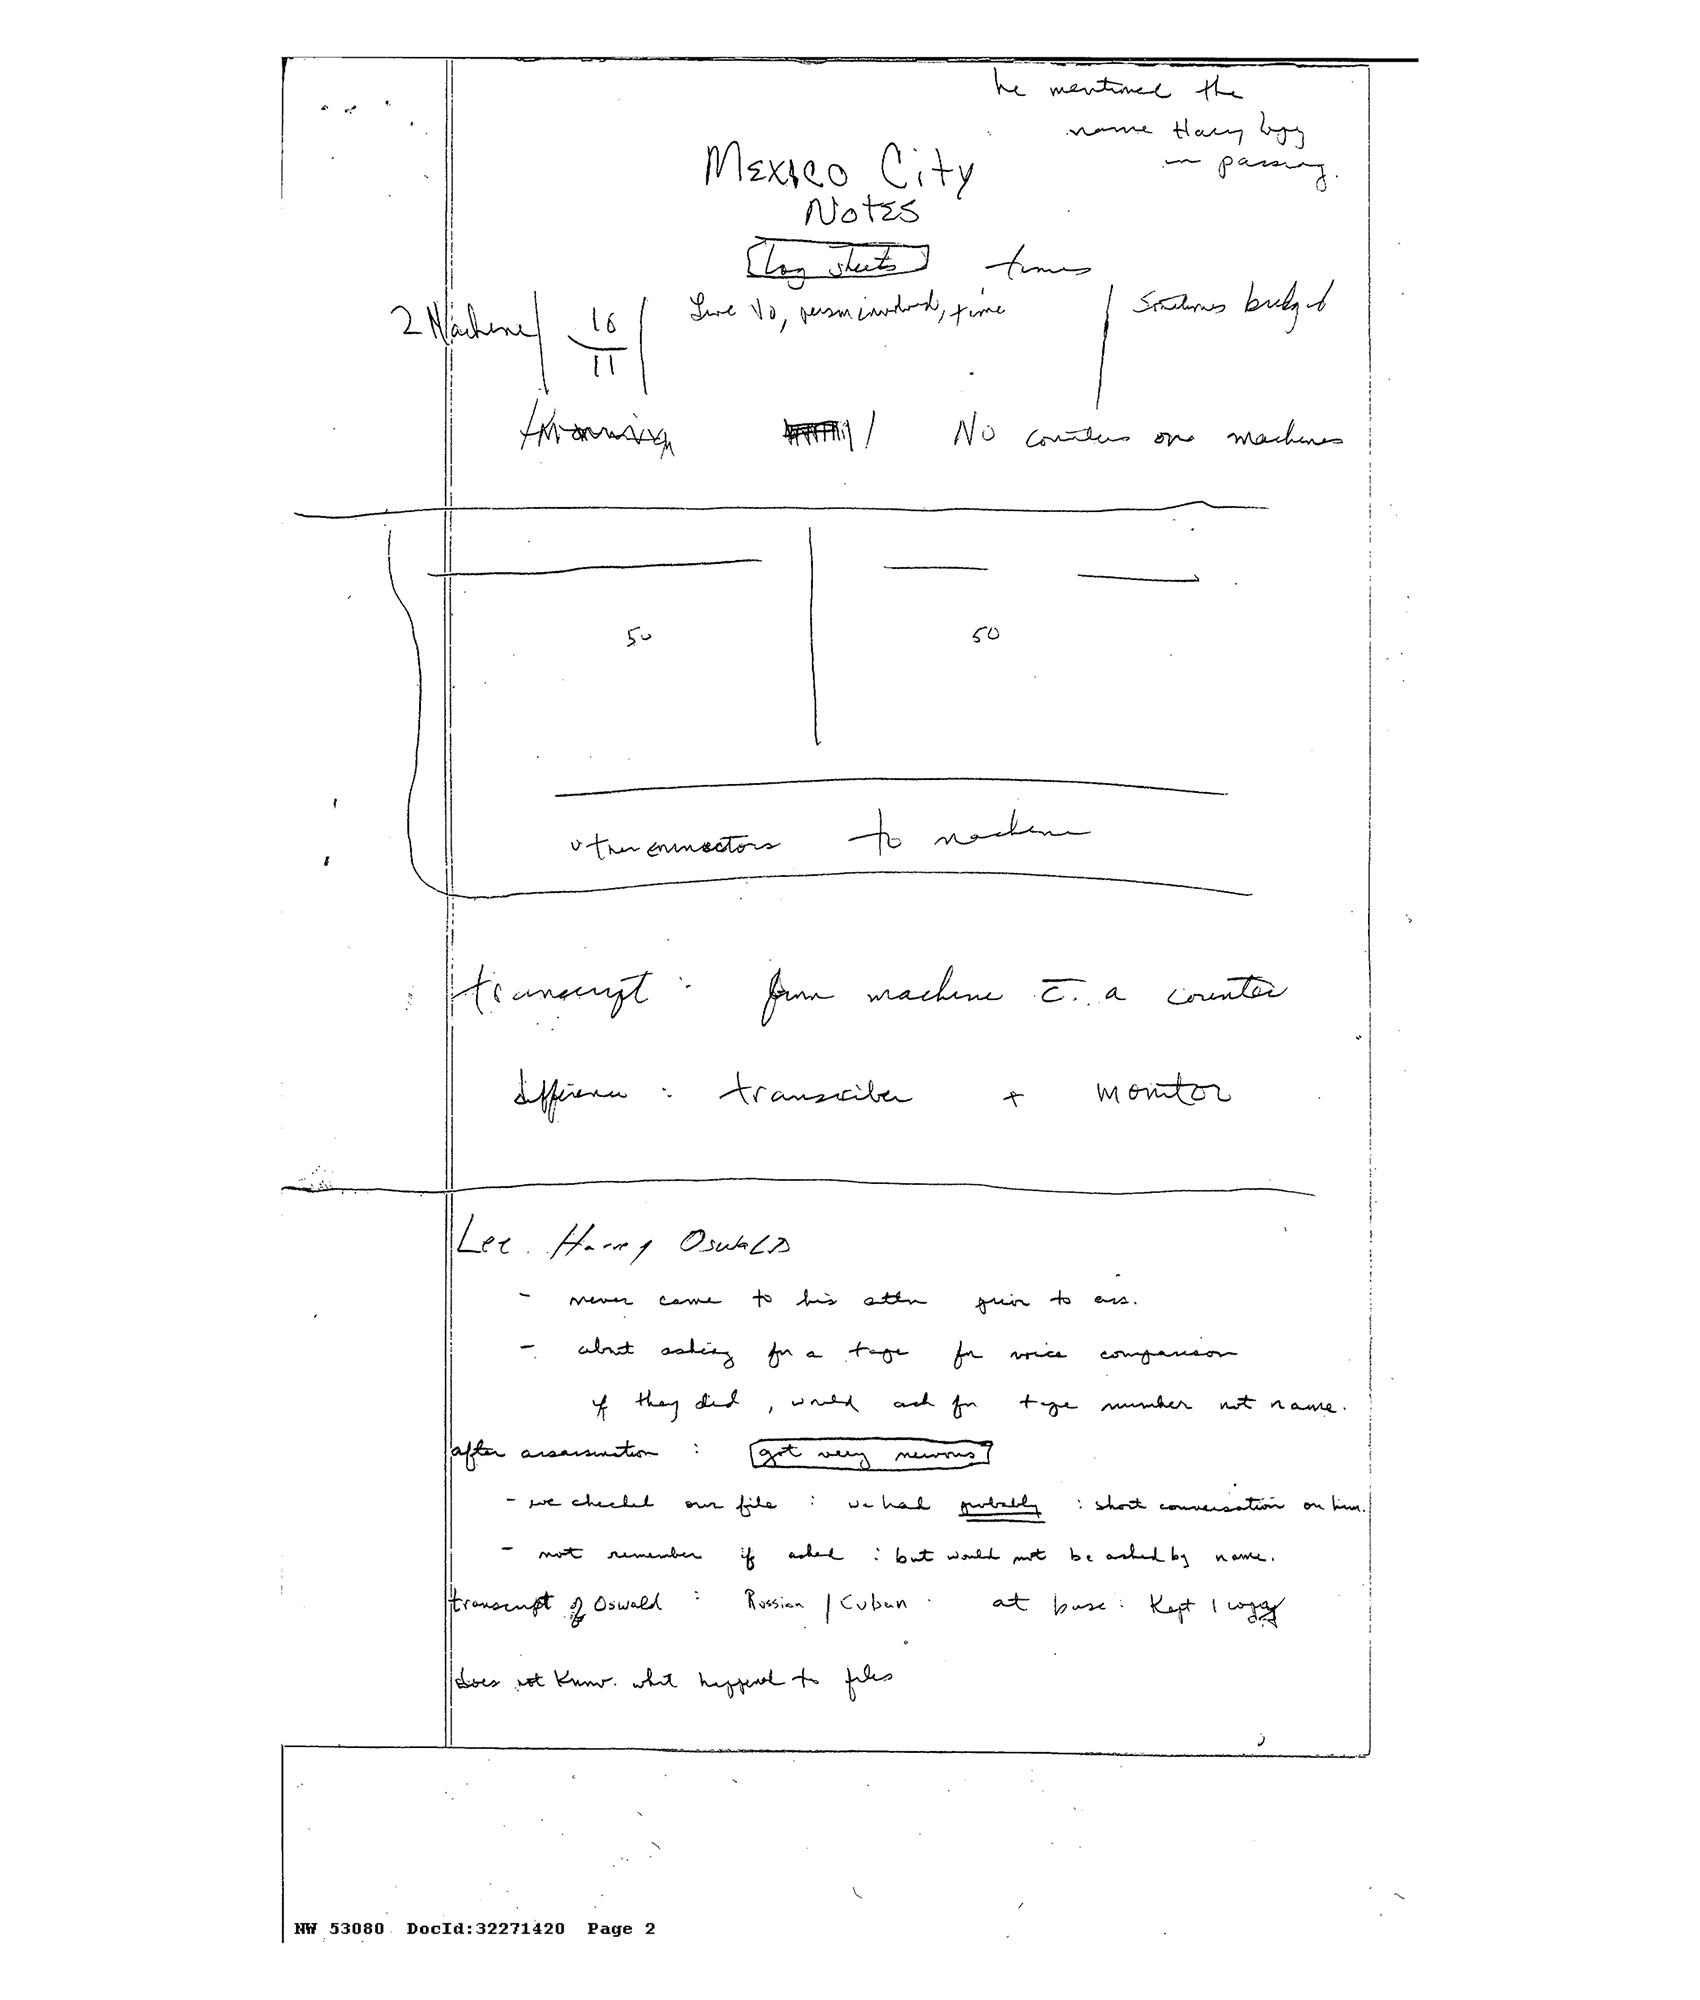 he mentioned the
name Harry
in passing.
MEXICO City
NOTES
Log sheets times
2 Machine 16 Line No, person involved, time Sometimes
11
No counters on machines
50 50
connectors to machine
transcript : from machine c̄ a counter
difference : transcriber + monitor
Lee Harvey OswaLD
- never came to his attn prior to ass.
- about asking for a tape for voice comparison
if they did, would ask for tape number not name.
after assassination : got very nervous
- we checked our file : we had probably : short conversation on him.
- not remember if asked : but would not be asked by name.
transcript of Oswald : Russian / Cuban . at base : Kept 1 copy
does not know what happened to files
NW 53080 DocId:32271420 Page 2